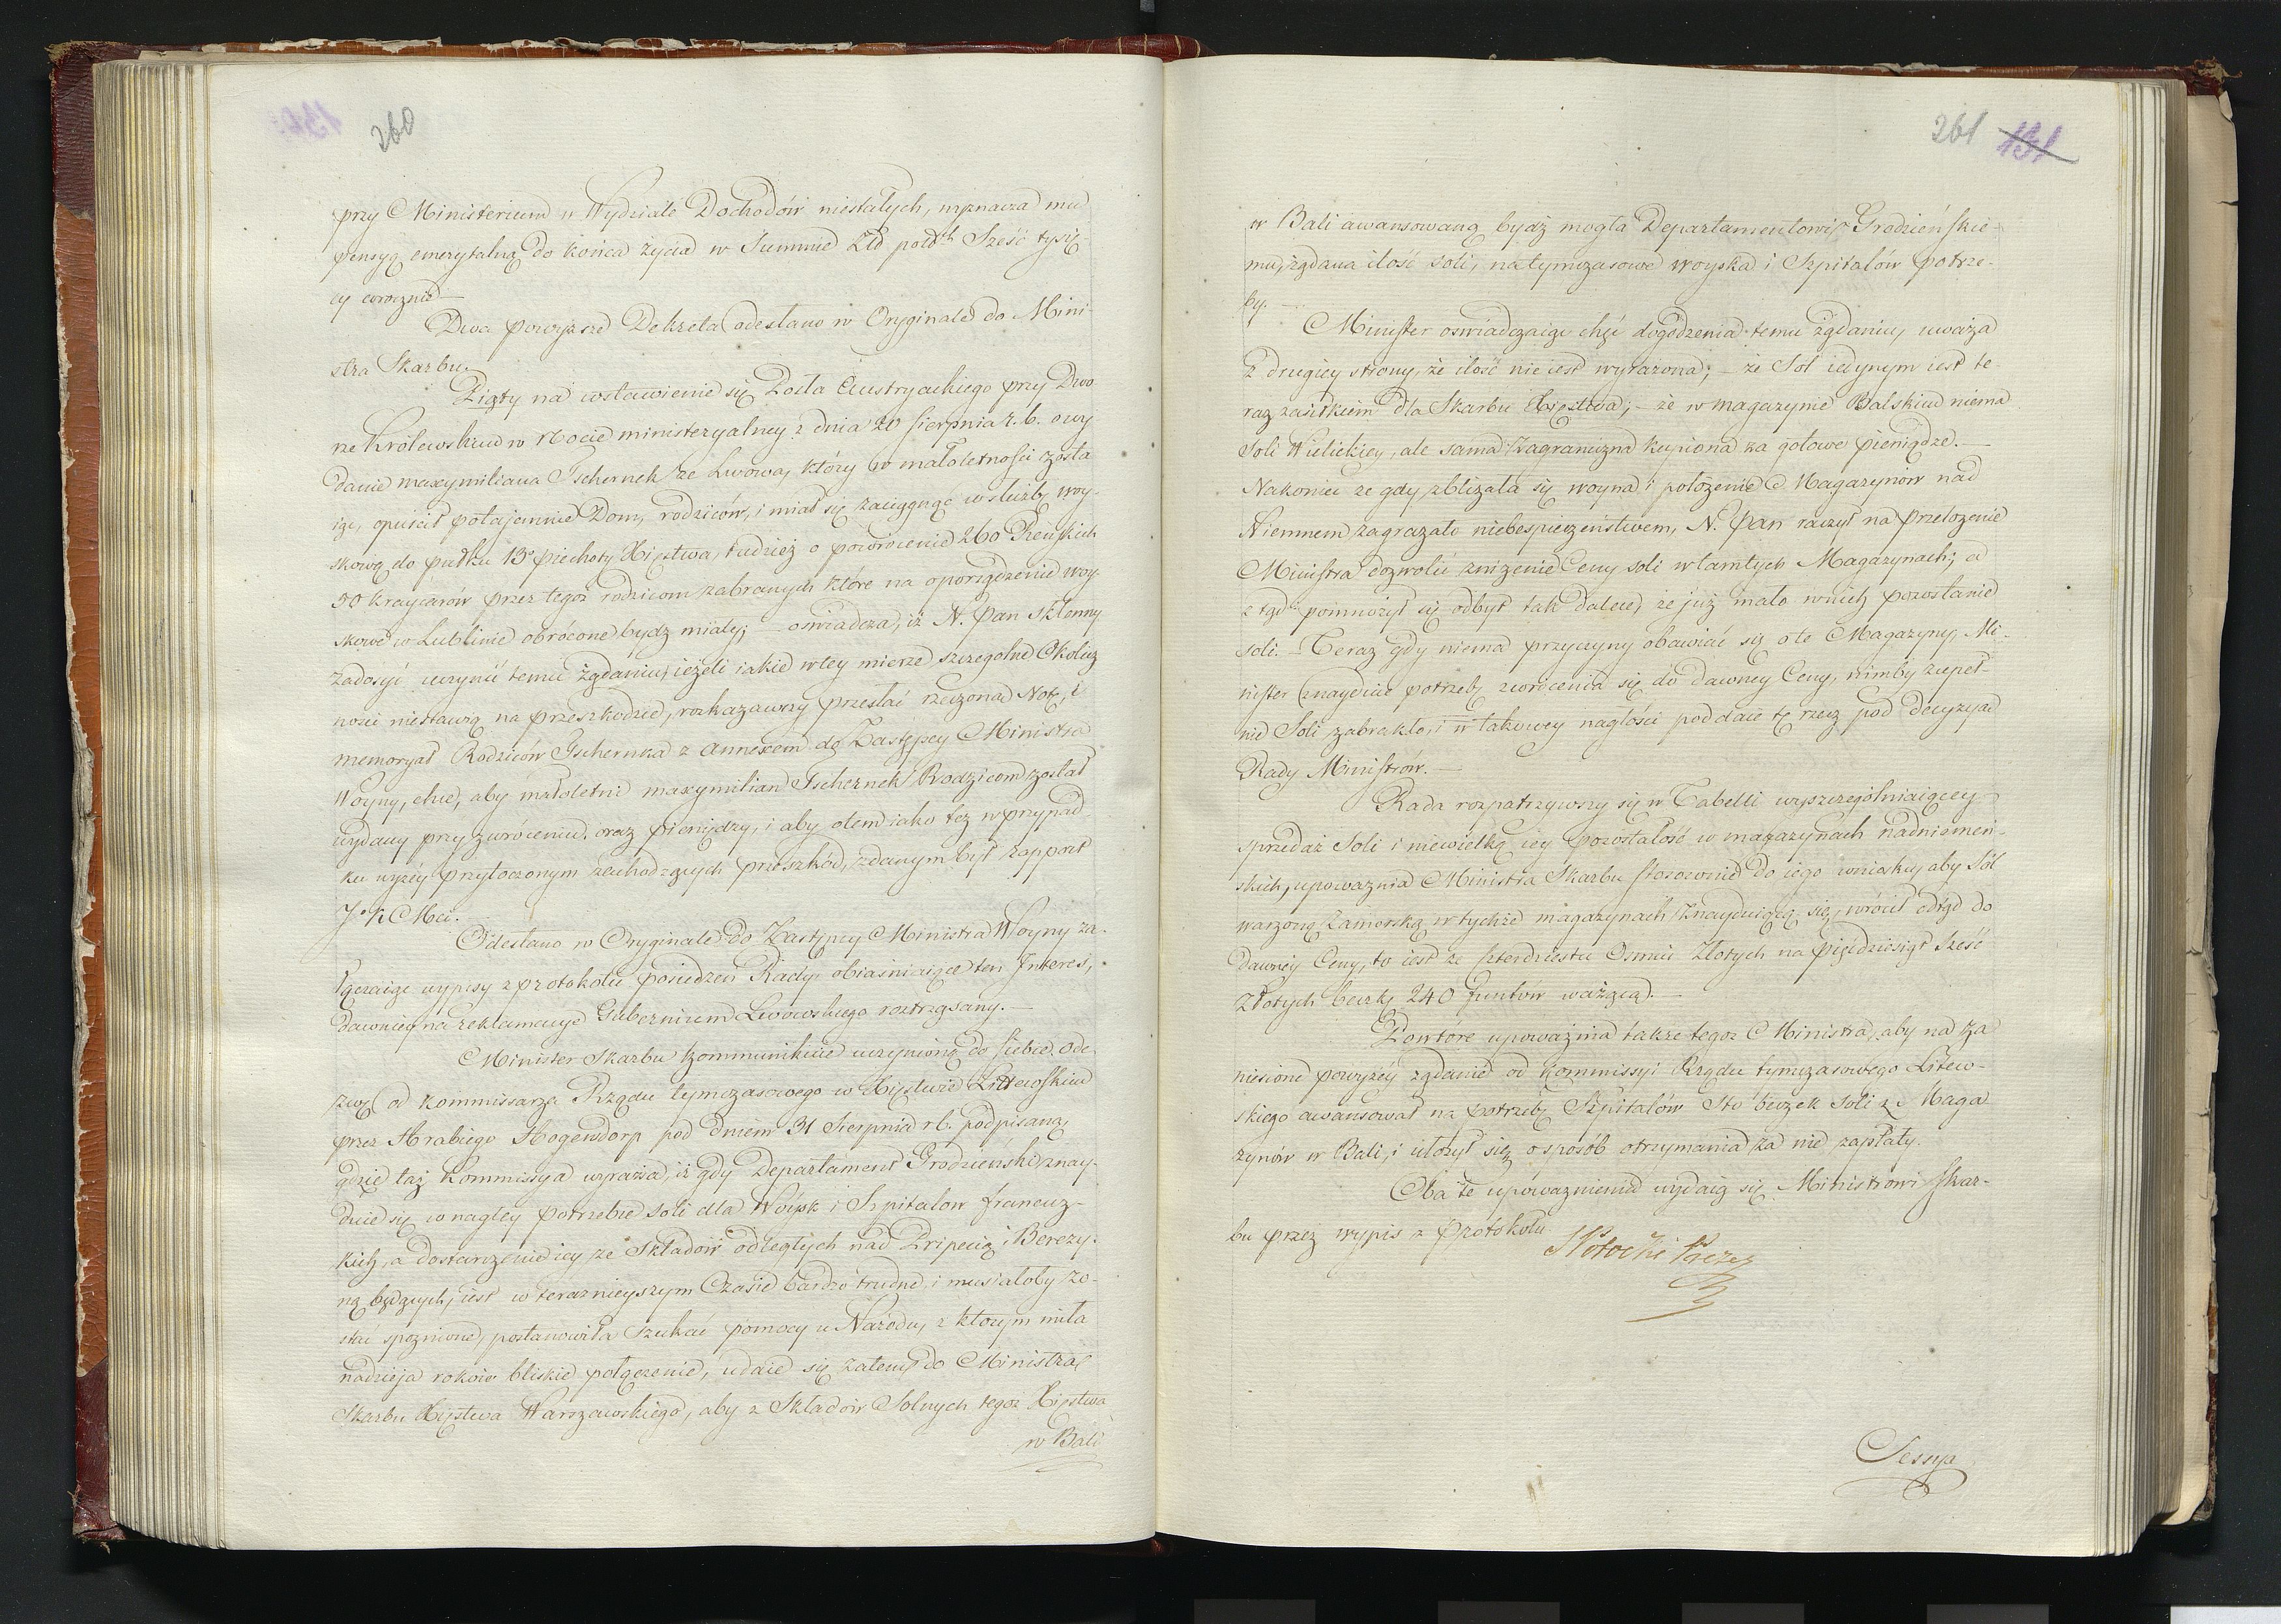 260
przy Ministerium w Wydziale Dochodów niestałych, wyznacza mu
pensyą emerytalną do końca życia w Summie Złł polskh Sześć tysię-
cy corocznie
Dwa powyższe Dekreta odesłano w Oryginale do Mini-
stra Skarbu.
Piąty na wstawienie się Posła Austryackiego przy Dwo
rze Królewskim w Nocie ministeryalney z dnia 20 Sierpnia r. b. o wy
danie maxymiliana Tschernek ze Lwowa, który w małoletności zosta
iąc, opuścił potajemnie Dom, rodziców, i miał się zaciągnąć w służbę woy-
skową do pułku 13o piechoty Xięstwa, tudzież o powrócenie 260 Reńskich
50 kraycarów przez tegoż rodzicom zabranych które na oporządzenie woy-
skowe w Lublinie obrócone bydz miały; — oświadcza, iż N. Pan skłonny
zadosyć uczynić temu żądaniu, ieżeli iakie w tey mierze szczegolne Okolicz
ności niestawią na przeszkodzie, rozkazawszy przesłać rzeczoną Notę, i
memoryał Rodziców Tschernka z annexem do Zastępcy Ministra
Woyny, chce, aby małoletni maxymilian Tschernek Rodzicom został
wydany przy zwróceniu oraz pieniędzy, i aby o tem iako też w przypad-
ku wyżéy przytoczonym zachodzących przeszkód, zdanym był rapport
J. K Mci.
Odesłano w Oryginale do Zastępcy Ministra Woyny za-
łączaiąc wypisy z protokołu posiedzeń Rady obiaśniaiące ten Interes,
dawniey na reklamacye Gubernium Lwowskiego roztrząsany. —
Minister Skarbu kommunikuie uczynioną do siebie Ode-
zwę od Kommissarza Rządu tymczasowego w Xięstwie Littewskim
przez Hrabiego Hogendorp pod dniem 31 Sierpnia r b. podpisaną,
gdzie taż Kommissya wyraża, iż gdy Departament Grodzieński znay-
duie się w nagłey potrzebie soli dla Woysk i Szpitalow francuz-
kich, a dostarczenie iey ze Składów odległych nad Pripecią i Berezy-
ną będących, iest w teraznieyszym Czasie bardzo trudne i musiałoby zo-
stać spoznione, postanowiła szukać pomocy u Narodu, z ktorym miła
nadzieja rokuie bliskie połączenie, udaie się zatem do Ministra
Skarbu Xięstwa Warszawskiego, aby z Składów Solnych tegoż Xięstwa
w Bali
261 131
w Bali awansowaną bydź mogła Departamentowi Grodzieńskie-
mu, żądana ilość soli, na tymczasowe woyska i Szpitalów potrze-
by. —
Minister oswiadczaiąc chęć dogodzenia temu żądaniu, uważa
z drugiey strony, że ilość nie iest wyrażona; — że Sól iedynym iest te-
raz zasiłkiem dla Skarbu Xięstwa; — że w magazynie Balskim niema
Soli Wielickiey, ale sama Zagraniczna kupiona za gotowe pieniądze. —
Nakoniec ze gdy zbliżała się woyna i położenie Magazynów nad
Niemnem zagrażało niebespieczeństwem, N. Pan raczył na przełożenie
Ministra dozwolić zniżenie Ceny soli w tamtych Magazynach; a
ztąd pomnożył się odbyt tak dalece, że już mało wnich pozostanie
soli. — Teraz gdy niema przyczyny obawiać się o te Magazyny, Mi-
nister znayduie potrzebę zwrócenia się do dawney Ceny, nimby zupeł-
nie Soli zabrakło, i w takowey nagłości poddaie tę rzecz pod decyzyą
Rady Ministrów. —
Rada rozpatrzywszy się w Tabelli wyszczególniaiącey
sprzedaż Soli i niewielką iey pozostałość w magazynach nadniemeń-
skich, upoważnia Ministra Skarbu stosownie do iego wniosku, aby Sól
warzoną Zamorską w tychże magazynach znayduiącą się, wrócił odtąd do
dawnéy Ceny, to iest ze szterdziestu Osmiu Złotych na pięćdziesiąt Sześć
Złotych beczkę 240 funtów ważącą. —
Powtóre upoważnia także tegoż Ministra, aby na za
niesione powyżéy żądanie od Kommissyi Rządu tymczasowego Litew-
skiego awansował na potrzebę Szpitalów Sto beczek Soli z Maga
zynów w Bali, i ułożył się o sposób otrzymania za nie zapłaty.
Oba te upoważnienia wydaią się Ministrowi Skar-
bu przez wypis z protokołu
St Potocki Prezes
Sessya